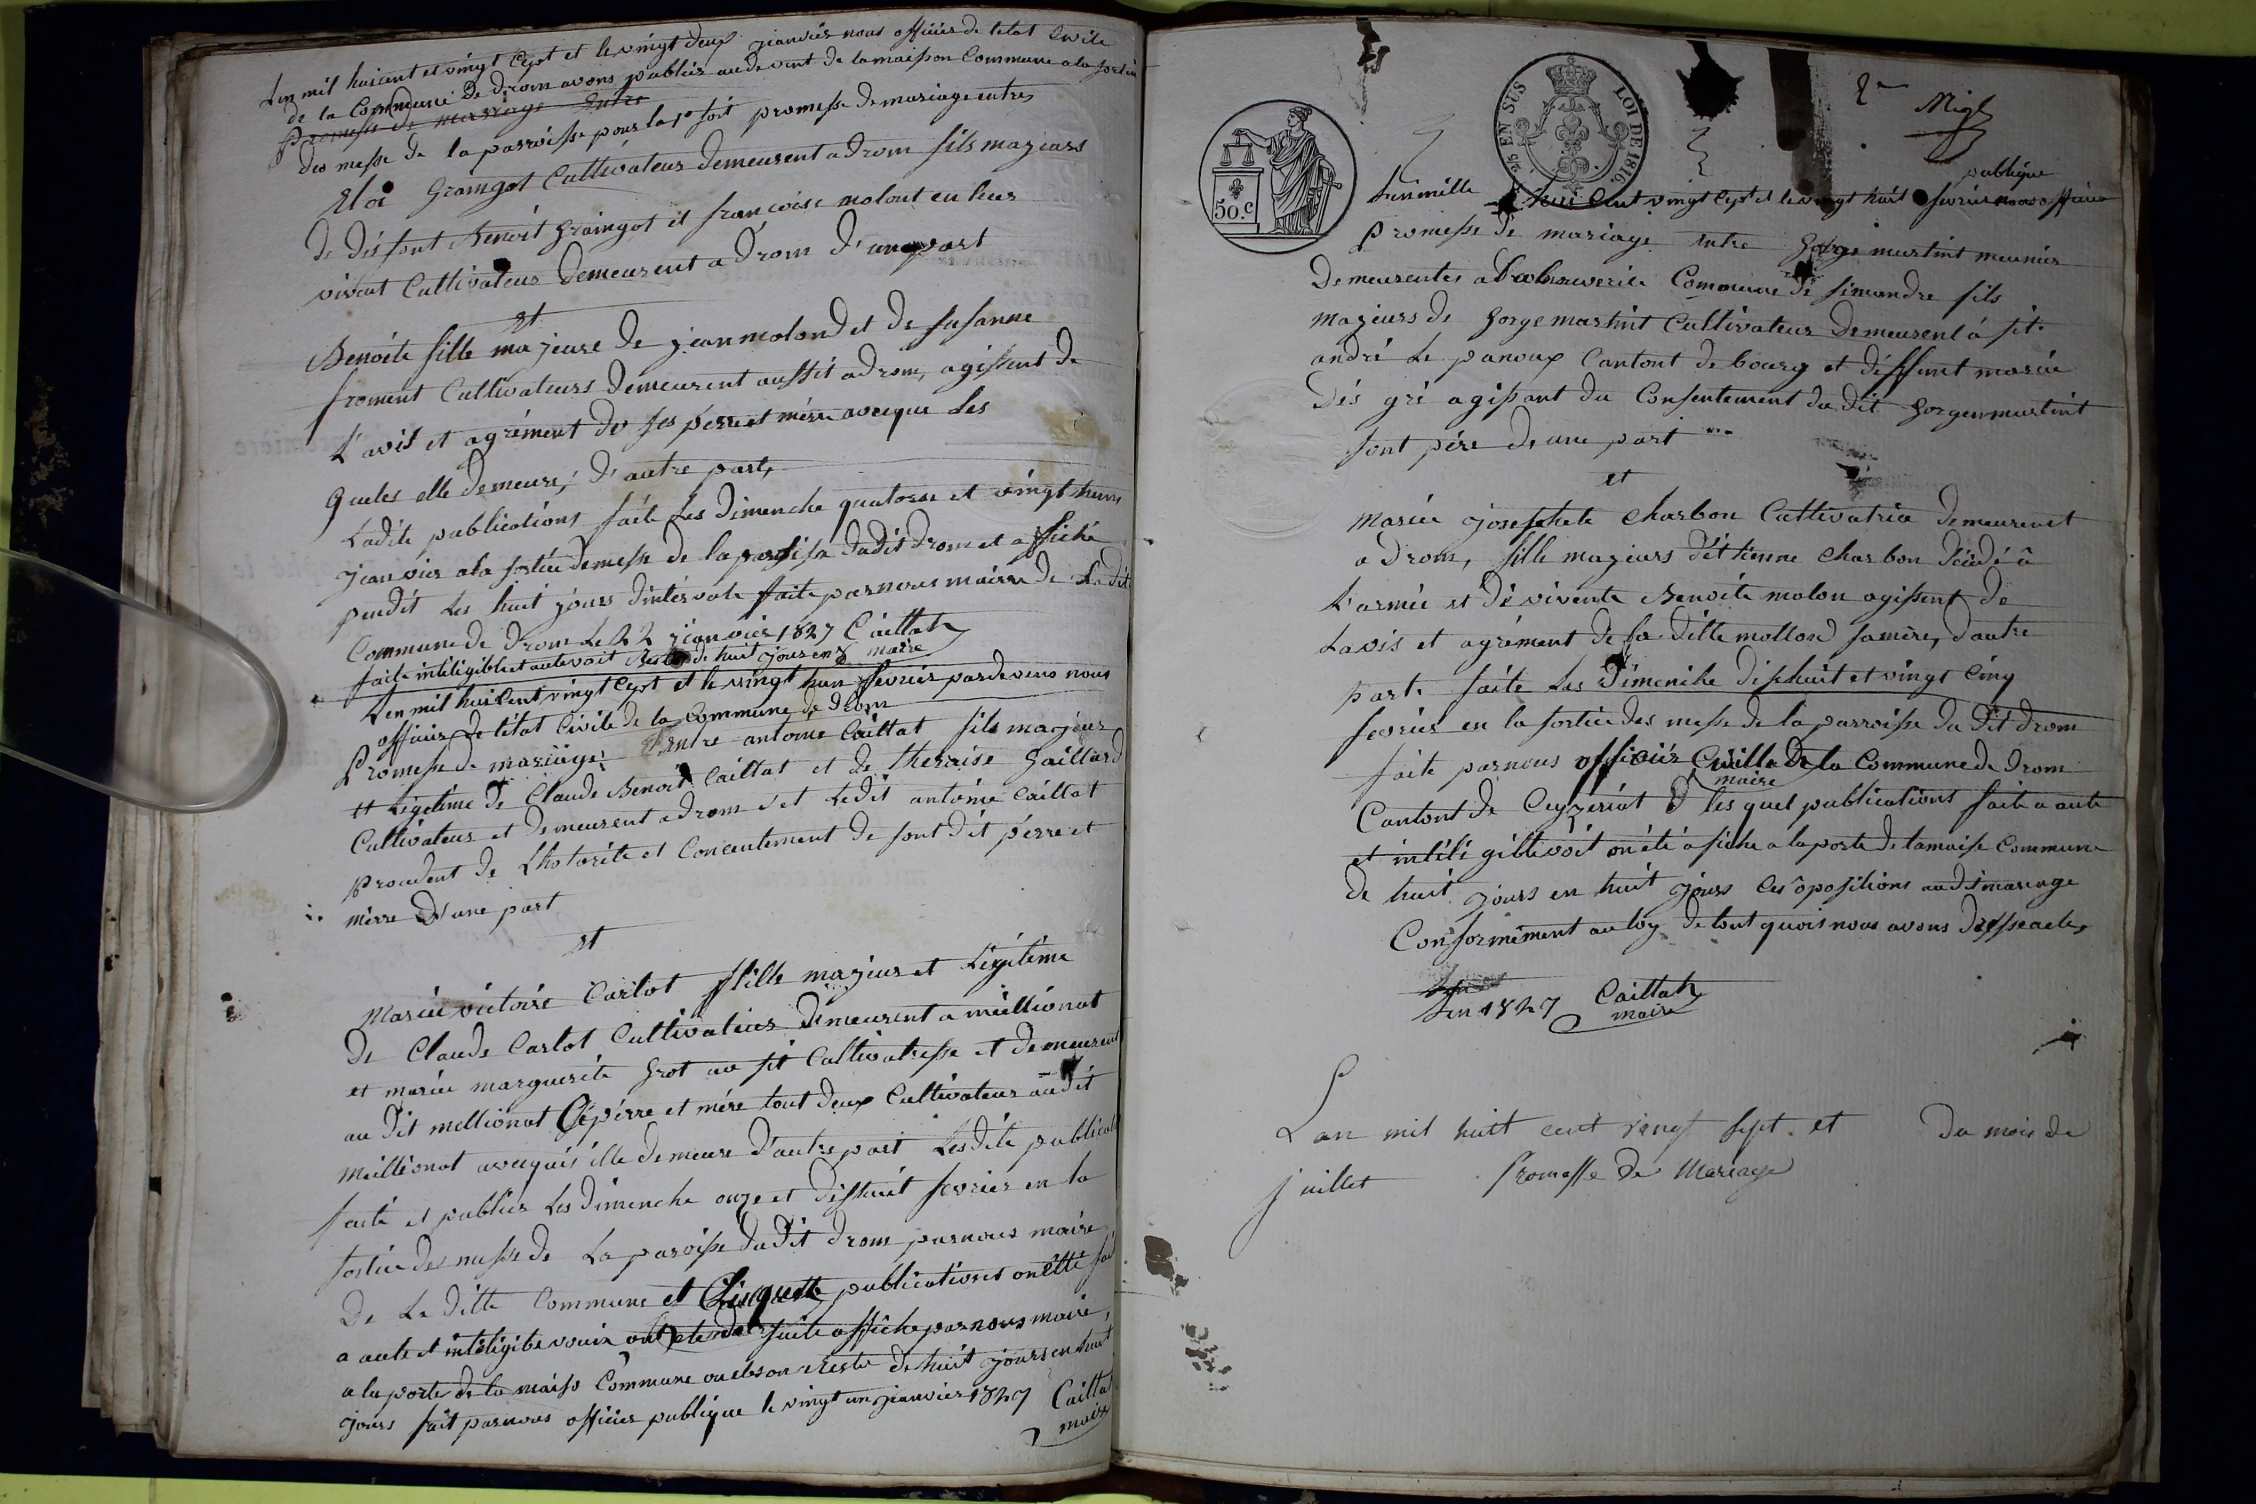 Lan mil huicent et vingt Cept et le vingt deux jeanvier nous officier de letat Civile
de la Commune de drom avons publier audevent de la maison Commune a la sortie
Promesse de mariage Entre
des messe de la parroisse pour la 1e foit promesse de mariage entre
Eloi Graingot Cultivateur demeurent a drom fils majeurs
de déffont Benoit Graingot et francoise molont en leur
vivent Cultivateur demeurent a Drom d'une part
et
Benoite fille majeure de jean molond et de susanne
froment Cultivateurs demeurent aussit a drom, agissent de
L'avis et agrément de ses perre et mere avecque les
queles elle demeure, d'autre part,
Ladite publications faite les dimenche quatorse et vingt hun
jeanvier a la sortie de messe de la dudit drom et affiche
pendit les huit jours d'intervale faite par nous maire de Ladite
Commune de drom Le 22 jeanvier 1827 Caillat
faite inteligible et aute voit de huit jours en 8 maire
Len mil huicent vingt Cept et le vingt hun fevrier par devens nous
officier de létat Civile de la Commune de drom
Promesse de mariage Entre antoine Caillat fils majeur
et Légetime de Claude Benoit Caillat et de theraise Gaillard
Cultivateur et demeurent a drom et Ledit antoine Caillat
procedent de Lhotorité et Concentement de sont dit perre et
mèrre D'une part
et
Mariee victoire Carlot fille majeur et Légitime
de Claude Carlot Cultivateur demeurent a meillionat
et mariee marguerite Grot au sit Cultivatresse et demeurent
au dit mellionat perre et mére tout deux Cultivateur audit
meillionat avecquis elle demeure d'autre part Lesdite publicati
faite et publier les dimenche onze et disehuit fevrier en la
sortie des messe de La paroisse dudit drom par nous maire
De La ditte Commune et publications on étté fai
a aute et inteligible voix faite affiche par nous maire,
a la porte de la maiso Commune ou elson resté de huit jours en huit
jours fait par nous officier publique le vingt un jeanvier 1827 Caillat
maire
25 EN SUS LOI DE 1816.
50.C
2e
publique
Lan mille huit Cent vingt Cept et le vingt huit fevrier nous officier
Promesse de mariage entre Gorge martint meunier
Demeurentes a Commune de simandre fils
Majeurs de Gorge martint Cultivateur Demeurent á st.
andré Le panoux Cantont de bourg et déffunt mariee
dés gré agissant du Consentement du dit Gorge martint
sont pére de une part
et
Mariée josephete Charbon Cultivatrice demeurent
a Drom, fille majeurs d'étienne Charbon décidé á
L'armée et dé vivente Benoite molon agissent de
Lavis et agrément de sa ditte mollond sa mère, dautre
part. faite Les dimeniche disehuit et vingt Cinq
fevrier en la sortie des messe de la parroisse du dit drom
faite par nous officier Cuille de la Commune de drom
maire
Cantont de Ceyzeriat les quel publications faite a aute
et inteli gible voit on été afiche a la porte de la maise Commune
de huit jours en huit jours les opositions audit mariage
Conformément au loy de tout quoi nous avons dressé acte,
Len 1827 Caillat
maire
Lan mil huit cent vingt sept. et du mois de
juillet Promesse de Mariage